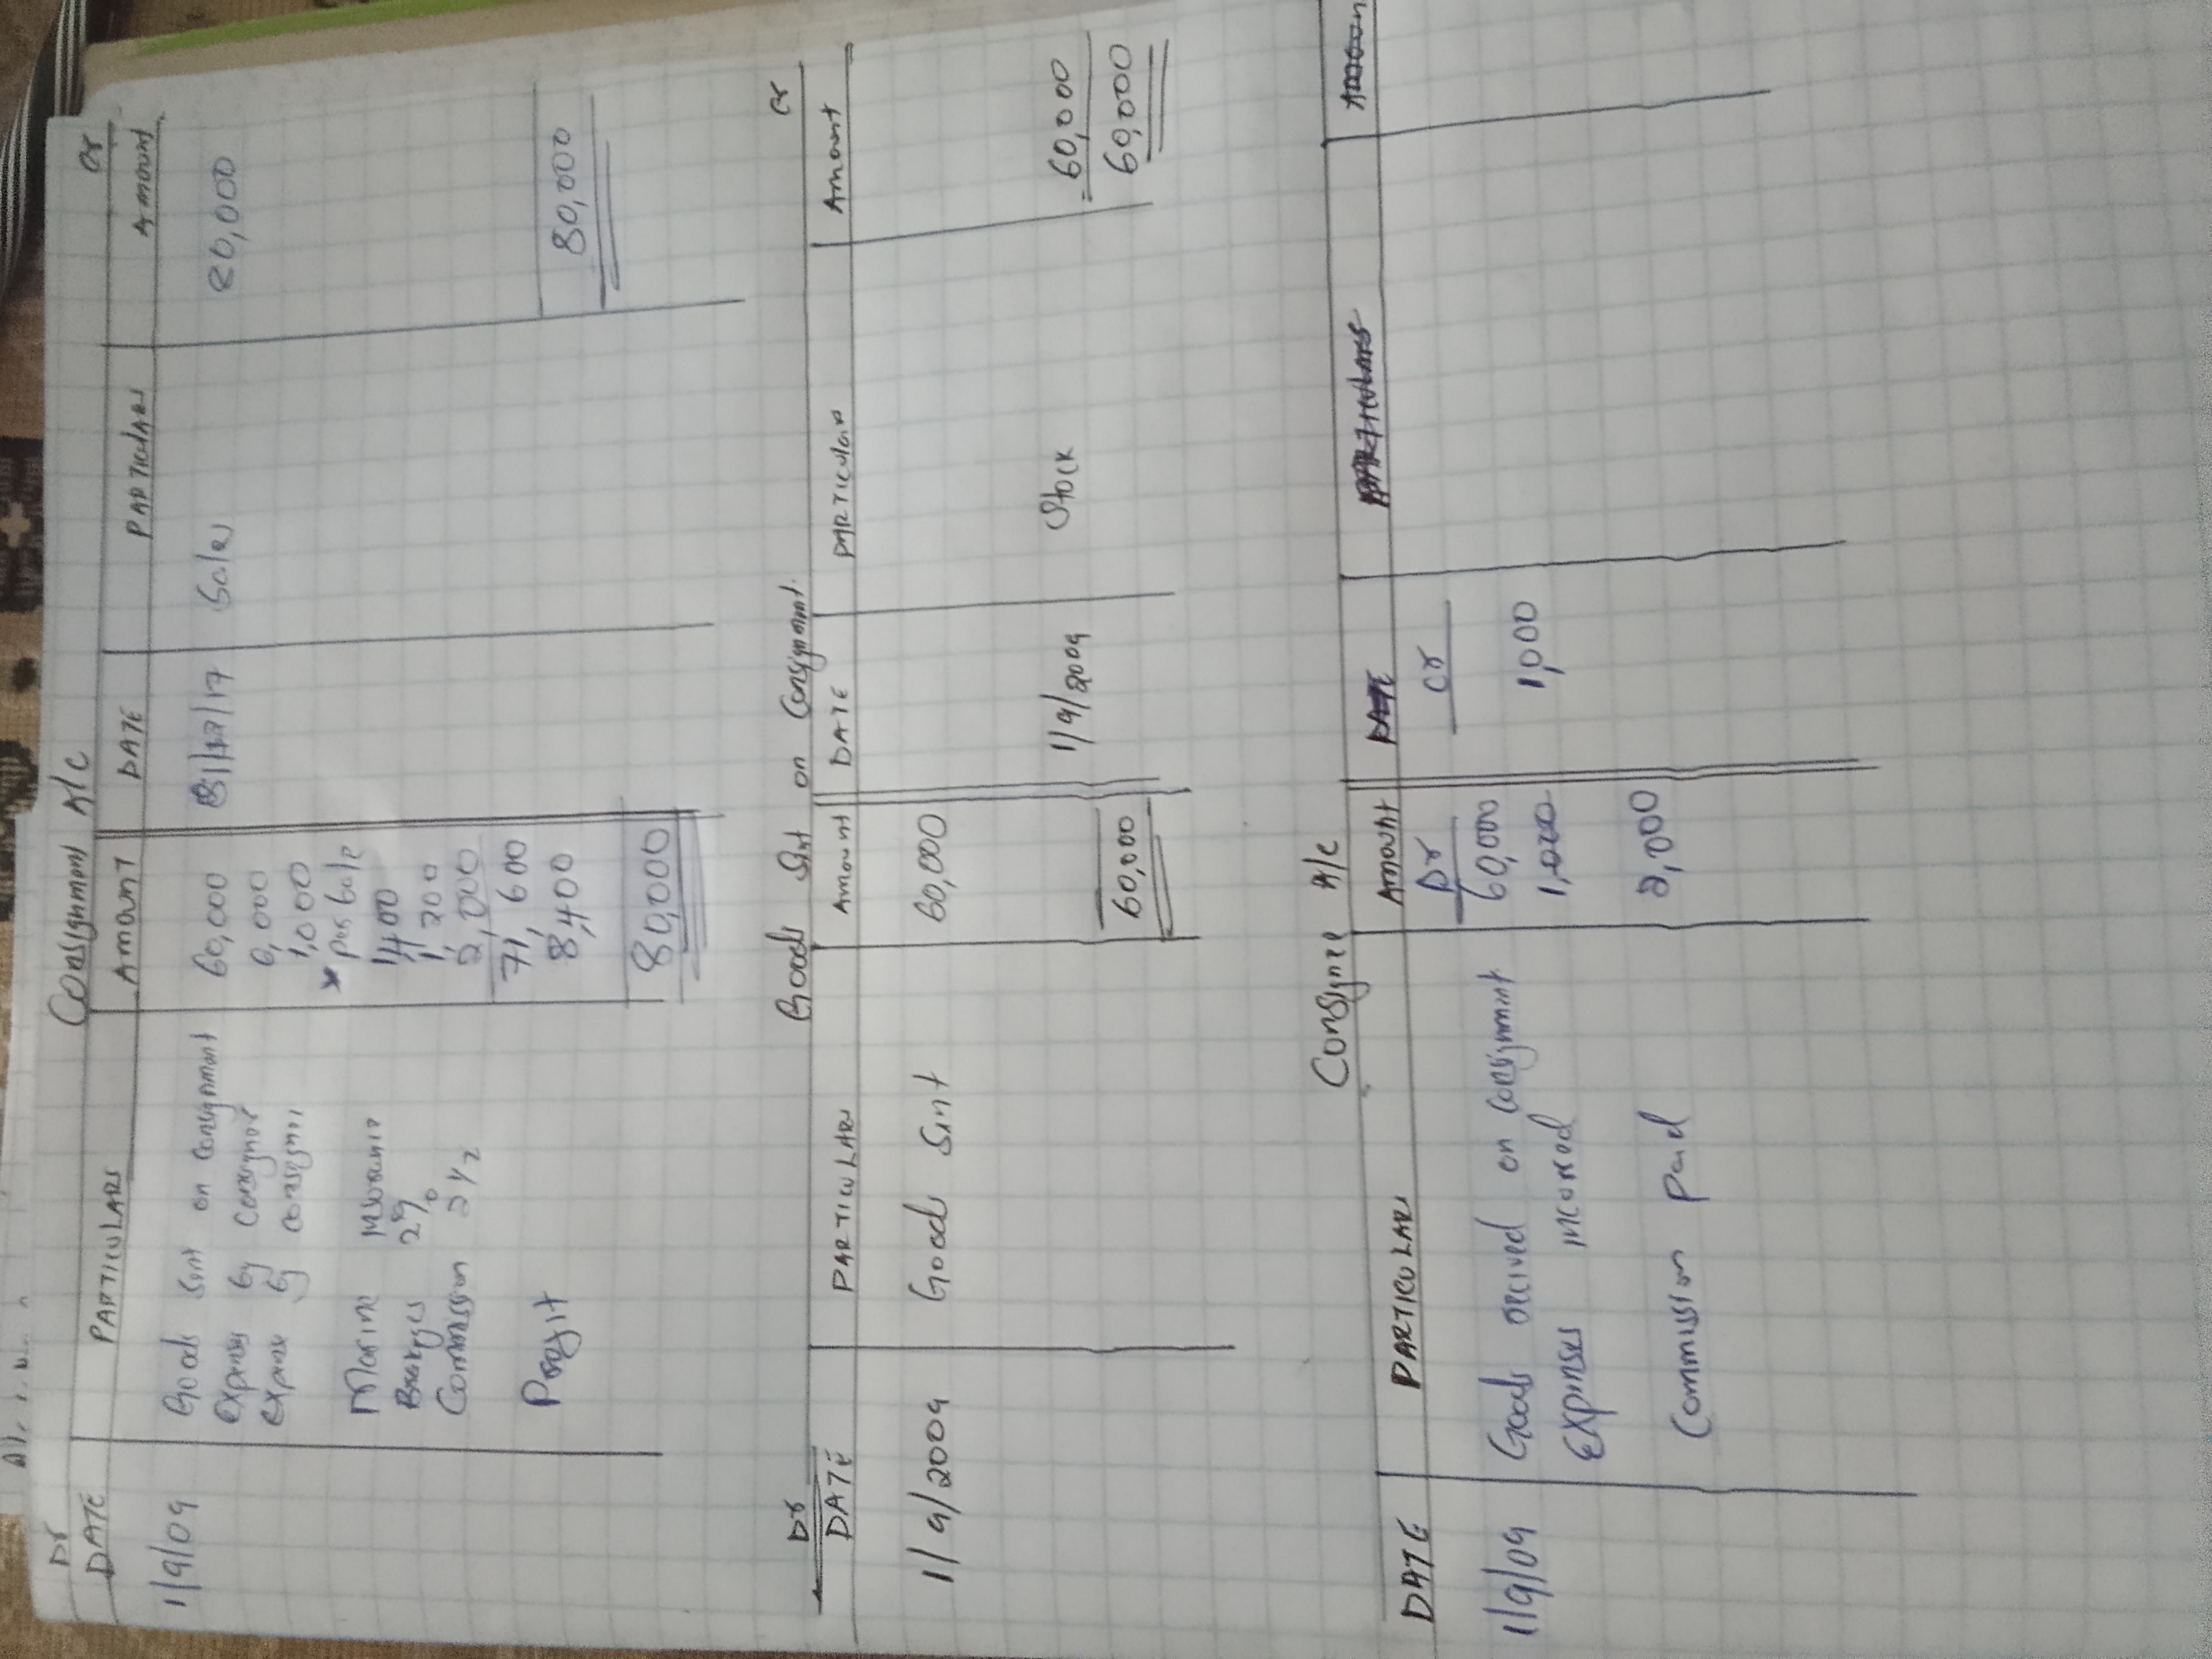 Consignment A/c
Dr Cr
DATE PARTICULARS AMOUNT DATE PARTICULARS Amount
1/9/09 Goods sent on consignment 60,000 31/12/17 Sales 80,000
Expenses by consignor 6,000
Expense by consignee 1,000
* per sale
Marine insurance 1,400
Breakges 2% 1,200
Commission 2 1/2 2,000
71,600
Profit 8,400
80,000 80,000
Goods Sent on Consignment.
Dr Cr
DATE PARTICULARS Amount DATE PARTICULARS Amount
1/9/2009 Goods Sent 60,000
1/9/2009 Stock 60,000
60,000 60,000
Consignee A/c
DATE PARTICULARS AMOUNT DATE PARTICULARS
Dr Cr
1/9/09 Goods received on consignment 60,000
Expenses incurred 1,000 1,000
Commission paid 2,000